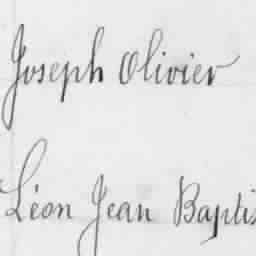 Joseph Olivier
Léon Jean Baptis